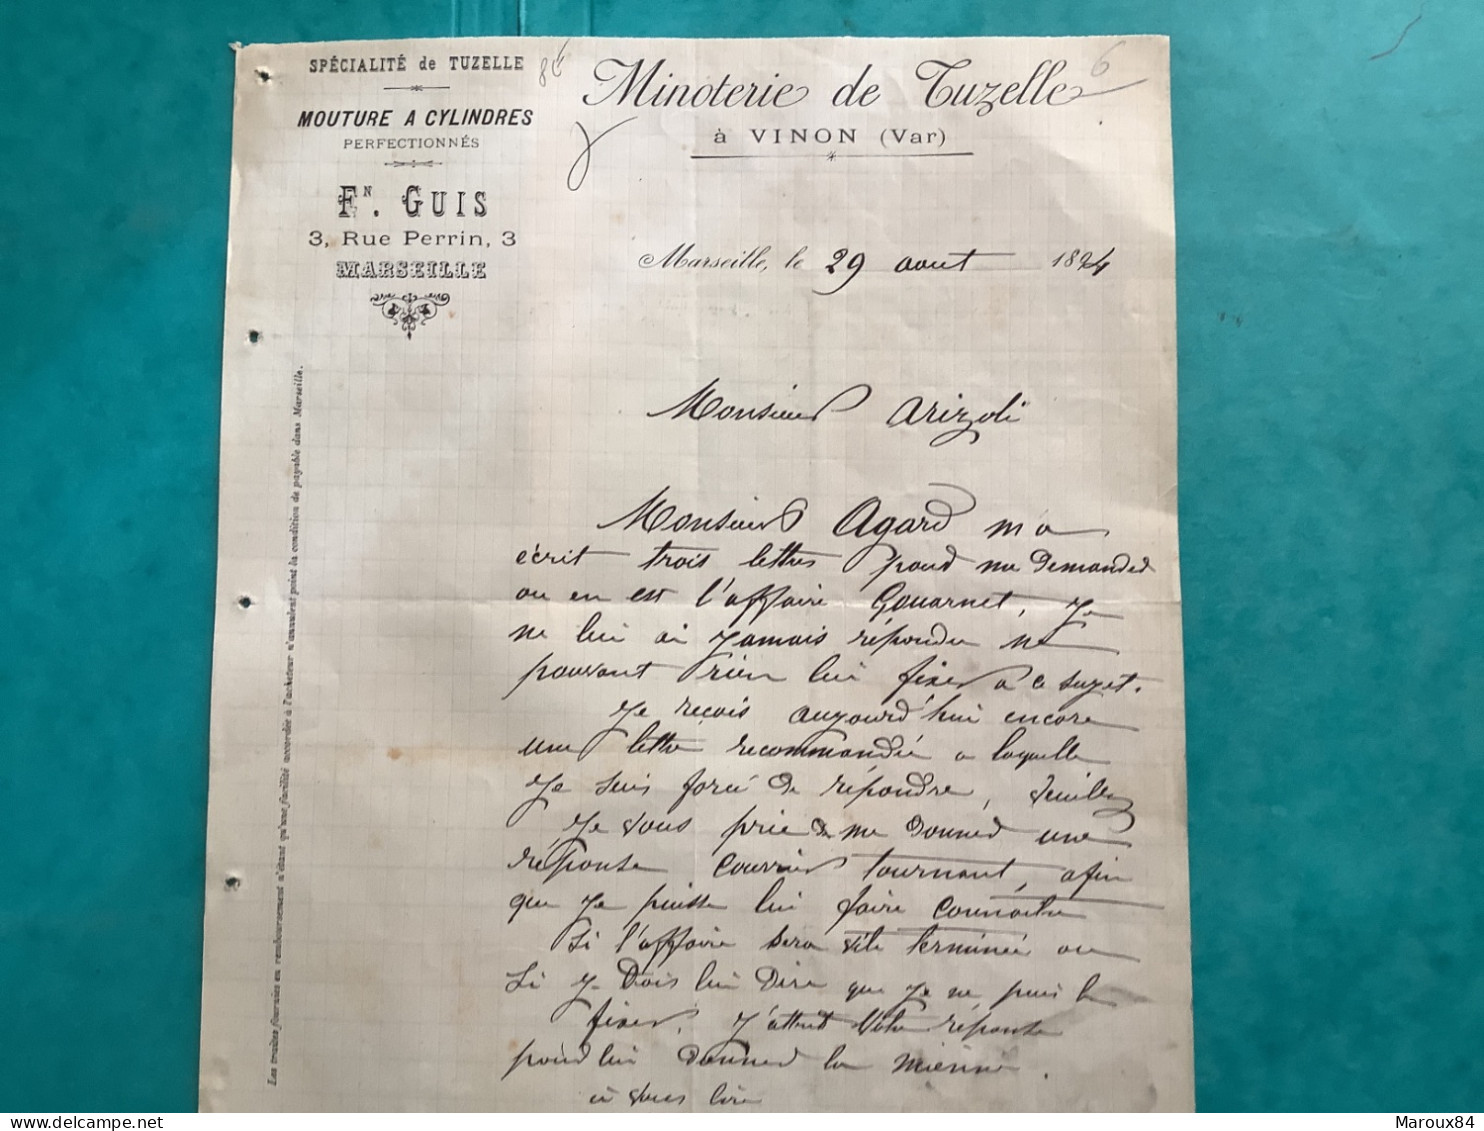 SPÉCIALITÉ de TUZELLE
MOUTURE A CYLINDRES
PERFECTIONNÉS
FN. GUIS
3, Rue Perrin, 3
MARSEILLE
6
Minoterie de Tuzelle
à VINON (Var)
Marseille, le 29 aout 1894
Monsieur Arizoli
Monsieur Agard m a
écrit trois lettres pour me demander
ou en est l'affaire Gouarnet, je
ne lui ai jamais répondu ne
pouvant rien lui fixer a ce sujet.
Je reçois aujourd'hui encore
une lettre recommandée a laquelle
je suis forcé de répondre, veuillez
je vous prie de me donner une
réponse courrier tournant, afin
que je puisse lui faire connaitre
Si l'affaire sera vite terminée ou
Si je dois lui dire que je ne puis le
fixer. J'attend votre réponse
pour lui donner la mienne.
à vous lire
Les traites fournies en remboursement n'étant qu'une facilité accordée à l'acheteur n'annulent point la condition de payable dans Marseille.
Maroux84